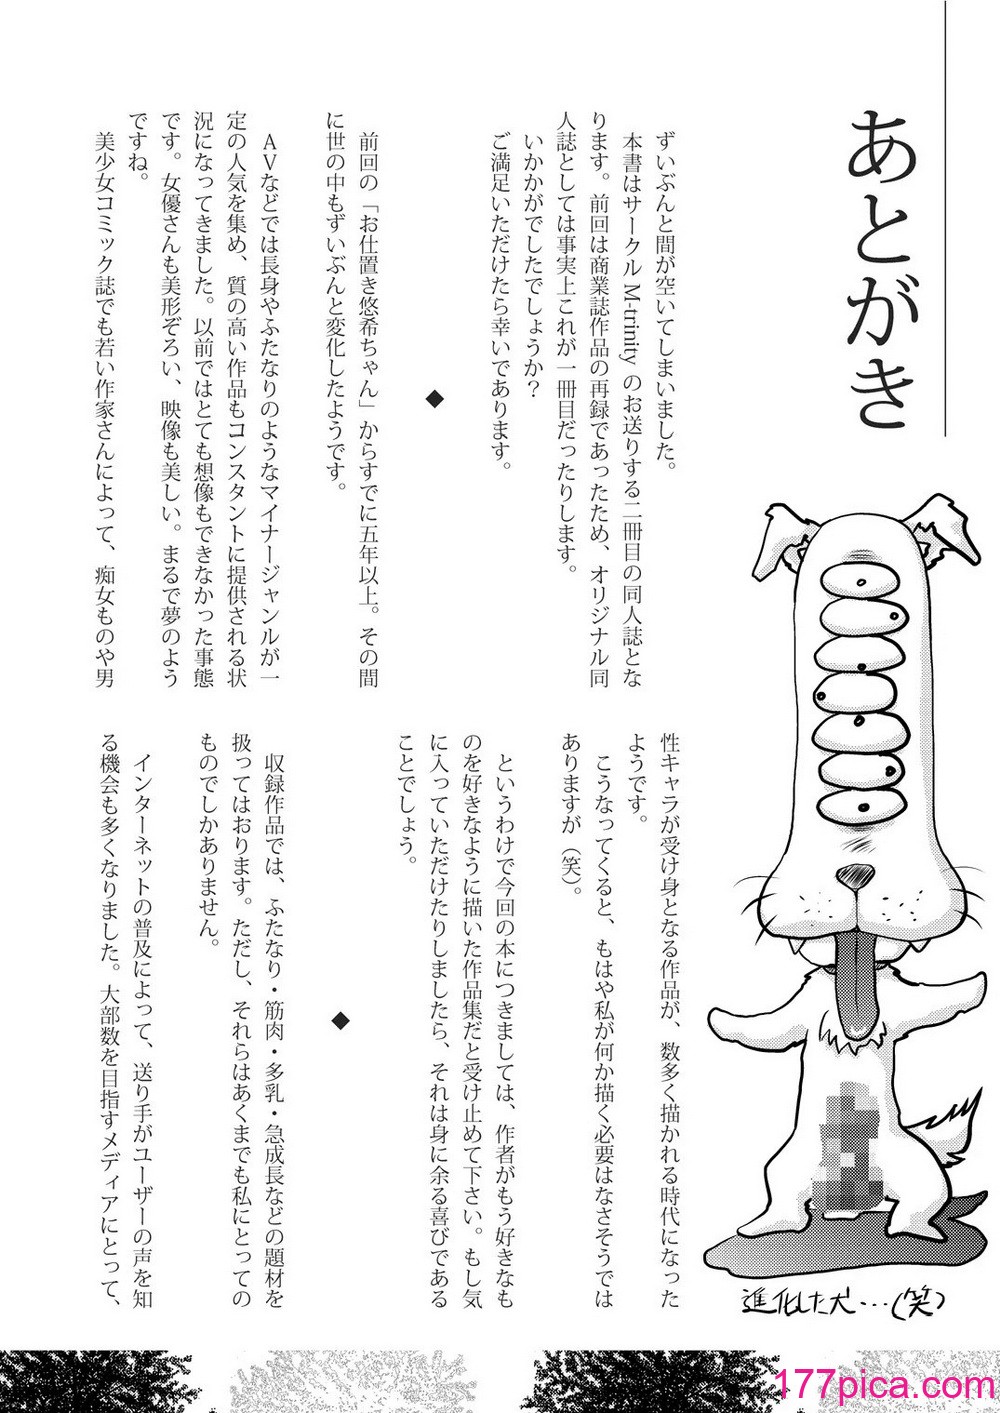 あとがき
ずいぶんと間が空いてしまいました。
本書はサークル M-trinity のお送りする二冊目の同人誌とな
ります。前回は商業誌作品の再録であったため、オリジナル同
人誌としては事実上これが一冊目だったりします。
いかがでしたでしょうか?
ご満足いただけたら幸いであります。
◆
前回の「お仕置き悠希ちゃん」からすでに五年以上。その間
に世の中もずいぶんと変化したようです。
AVなどでは長身やふたなりのようなマイナージャンルが一
定の人気を集め、質の高い作品もコンスタントに提供される状
況になってきました。以前ではとても想像もできなかった事態
です。女優さんも美形ぞろい、映像も美しい。まるで夢のよう
ですね。
美少女コミック誌でも若い作家さんによって、痴女ものや男
性キャラが受け身となる作品が、数多く描かれる時代になった
ようです。
こうなってくると、もはや私が何か描く必要はなさそうでは
ありますが(笑)。
というわけで今回の本につきましては、作者がもう好きなも
のを好きなように描いた作品集だと受け止めて下さい。もし気
に入っていただけたりしましたら、それは身に余る喜びである
ことでしょう。
◆
収録作品では、ふたなり・筋肉・多乳・急成長などの題材を
扱ってはおります。ただし、それらはあくまでも私にとっての
ものでしかありません。
インターネットの普及によって、送り手がユーザーの声を知
る機会も多くなりました。大部数を目指すメディアにとって、
進化した犬…(笑)
177pica.com